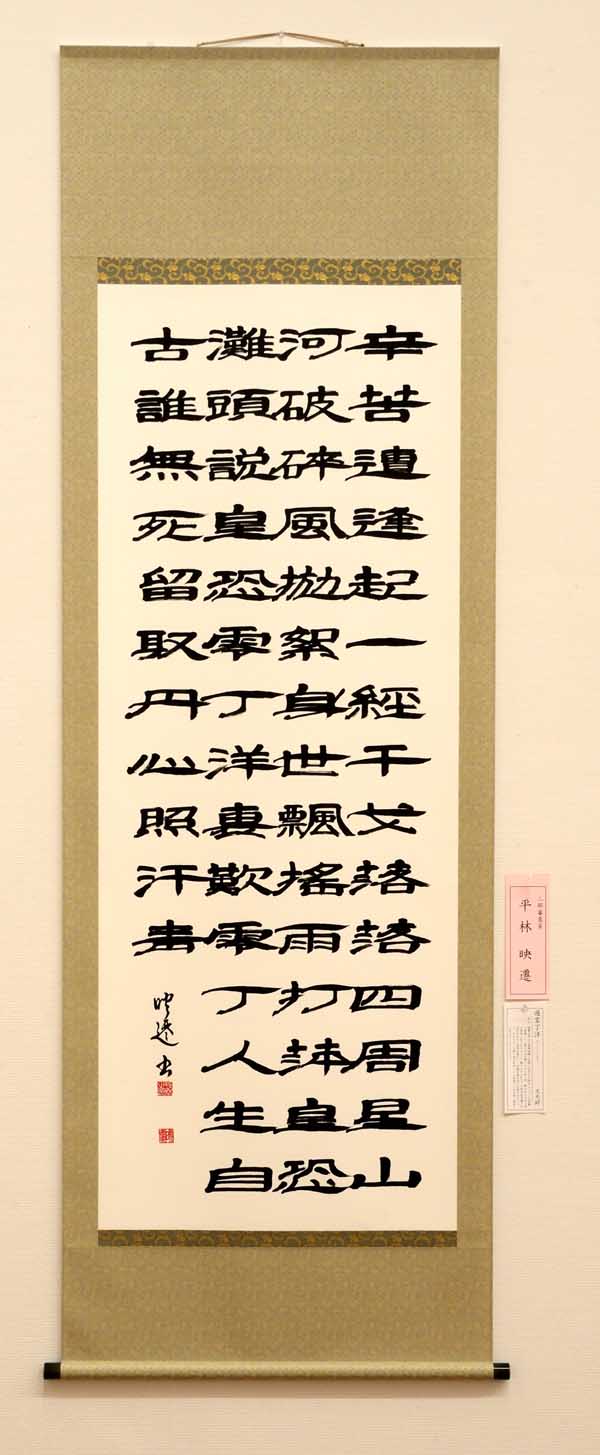 辛苦遭逢起一經干戈落落四周星山
河破碎風抛絮身世飄搖雨打萍皇恐
灘頭說皇恐零丁洋裏歎零丁人生自
古誰無死留取丹心照汗青
映遷書
平林映遷
過零丁洋
文天祥